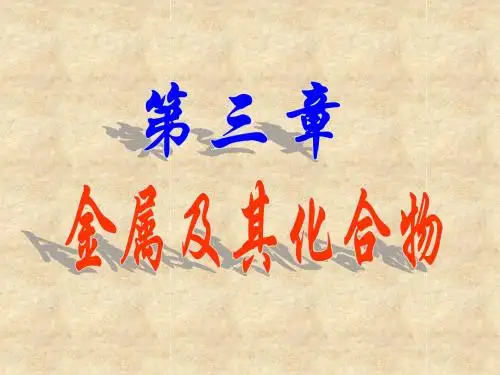 第三章
金属及其化合物